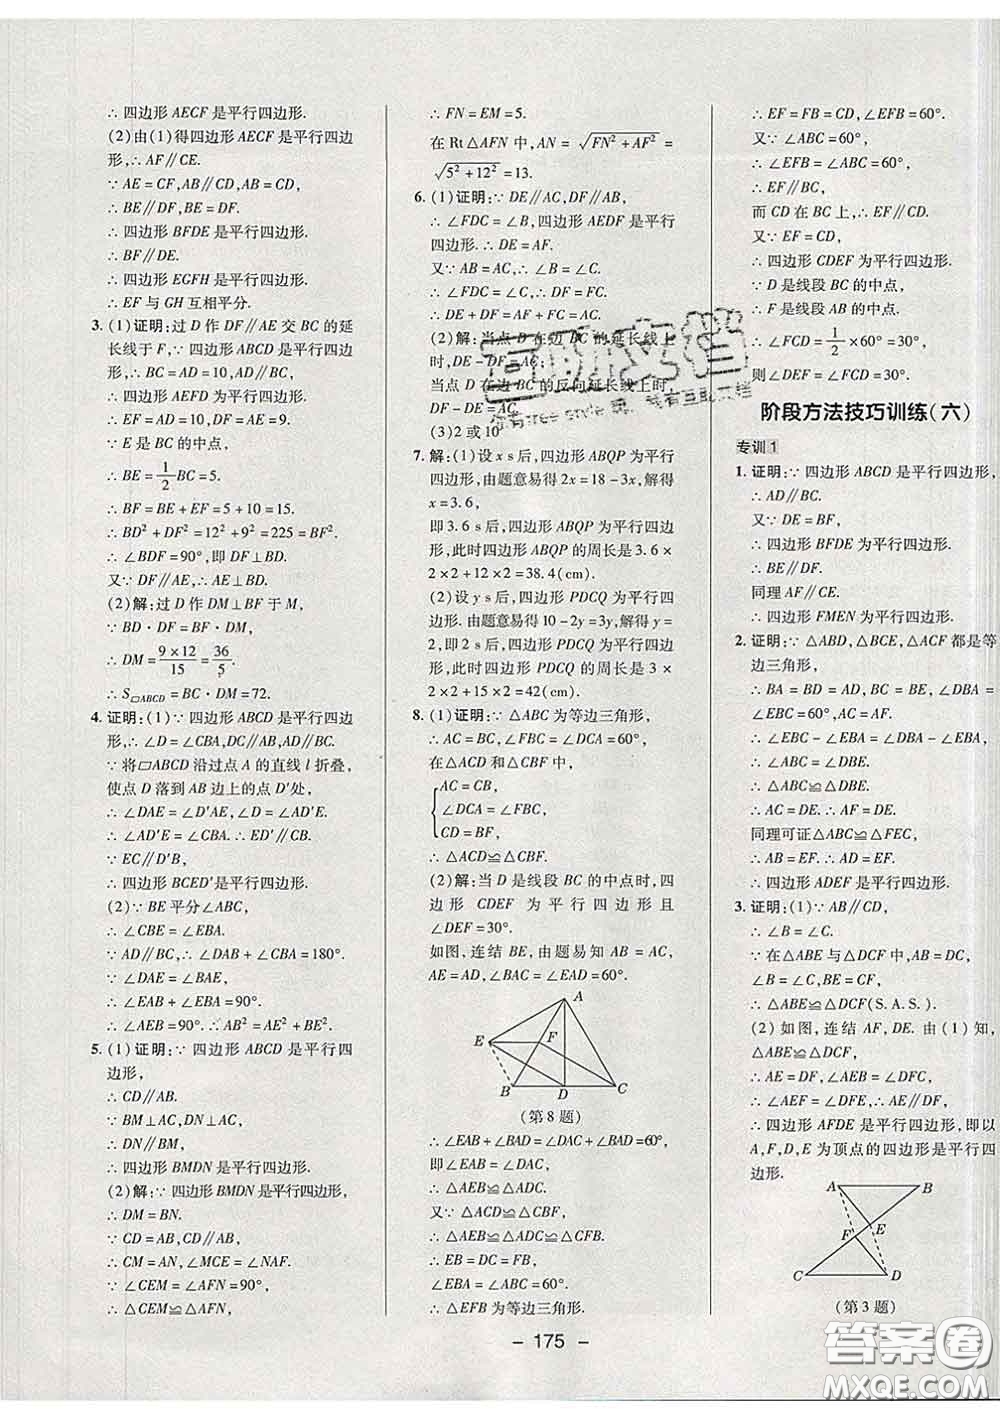 ∴ 四边形 AECF 是平行四边形.
(2)由(1)得四边形 AECF 是平行四边
形,∴ AF∥CE.
∵ AE = CF,AB∥CD,AB = CD,
∴ BE∥DF,BE = DF.
∴ 四边形 BFDE 是平行四边形.
∴ BF∥DE.
∴ 四边形 EGFH 是平行四边形.
∴ EF 与 GH 互相平分.
3. (1)证明:过 D 作 DF∥AE 交 BC 的延
长线于 F,∵ 四边形 ABCD 是平行四边
形,∴ BC = AD = 10,AD∥BC,
∴ 四边形 AEFD 为平行四边形.
∴ EF = AD = 10,DF = AE = 9.
∵ E 是 BC 的中点,
∴ BE = 1/2 BC = 5.
∴ BF = BE + EF = 5 + 10 = 15.
∴ BD² + DF² = 12² + 9² = 225 = BF².
∴ ∠BDF = 90°,即 DF⊥BD.
又∵ DF∥AE,∴ AE⊥BD.
(2)解:过 D 作 DM⊥BF 于 M,
∵ BD · DF = BF · DM,
∴ DM = 9×12/15 = 36/5.
∴ S▱ABCD = BC · DM = 72.
4. 证明:(1)∵ 四边形 ABCD 是平行四边
形,∴ ∠D = ∠CBA,DC∥AB,AD∥BC.
∵ 将▱ABCD 沿过点 A 的直线 l 折叠,
使点 D 落到 AB 边上的点 D′处,
∴ ∠DAE = ∠D′AE,∠D = ∠AD′E.
∴ ∠AD′E = ∠CBA. ∴ ED′∥CB.
∵ EC∥D′B,
∴ 四边形 BCED′是平行四边形.
(2)∵ BE 平分∠ABC,
∴ ∠CBE = ∠EBA.
∵ AD∥BC,∴ ∠DAB + ∠CBA = 180°.
∵ ∠DAE = ∠BAE,
∴ ∠EAB + ∠EBA = 90°.
∴ ∠AEB = 90°. ∴ AB² = AE² + BE².
5. (1)证明:∵ 四边形 ABCD 是平行四
边形,
∴ CD∥AB.
∵ BM⊥AC,DN⊥AC,
∴ DN∥BM.
∴ 四边形 BMDN 是平行四边形.
(2)解:∵ 四边形 BMDN 是平行四边形,
∴ DM = BN.
∵ CD = AB,CD∥AB,
∴ CM = AN,∠MCE = ∠NAF.
∵ ∠CEM = ∠AFN = 90°,
∴ △CEM≌△AFN,
∴ FN = EM = 5.
在 Rt△AFN 中,AN = √(FN² + AF²) =
√(5² + 12²) = 13.
6. (1)证明:∵ DE∥AC,DF∥AB,
∴ ∠FDC = ∠B,四边形 AEDF 是平行
四边形. ∴ DE = AF.
又∵ AB = AC,∴ ∠B = ∠C.
∴ ∠FDC = ∠C,∴ DF = FC.
∴ DE + DF = AF + FC = AC.
(2)解:当点 D 在边 BC 的延长线上
时,DE - DF = AC;
当点 D 在边 BC 的反向延长线上时,
DF - DE = AC.
(3)2 或 10
7. 解:(1)设 x s 后,四边形 ABQP 为平行
四边形,由题意易得 2x = 18 - 3x,解得
x = 3.6,
即 3.6 s 后,四边形 ABQP 为平行四边
形,此时四边形 ABQP 的周长是 3.6 ×
2 × 2 + 12 × 2 = 38.4(cm).
(2)设 y s 后,四边形 PDCQ 为平行四
边形. 由题意易得 10 - 2y = 3y,解得 y =
2,即 2 s 后,四边形 PDCQ 为平行四边
形,此时四边形 PDCQ 的周长是 3 ×
2 × 2 + 15 × 2 = 42(cm).
8. (1)证明:∵ △ABC 为等边三角形,
∴ AC = BC,∠FBC = ∠DCA = 60°,
在△ACD 和△CBF 中,
AC = CB,
∠DCA = ∠FBC,
CD = BF,
∴ △ACD≌△CBF.
(2)解:当 D 是线段 BC 的中点时,四
边形 CDEF 为平行四边形且
∠DEF = 30°.
如图,连结 BE,由题易知 AB = AC,
AE = AD,∠BAC = ∠EAD = 60°,
A
E
F
B
D
C
(第 8 题)
∴ ∠EAB + ∠BAD = ∠DAC + ∠BAD = 60°,
即∠EAB = ∠DAC,
∴ △AEB≌△ADC.
又∵ △ACD≌△CBF,
∴ △AEB≌△ADC≌△CFB.
∴ EB = DC = FB,
∠EBA = ∠ABC = 60°.
∴ △EFB 为等边三角形.
∴ EF = FB = CD,∠EFB = 60°.
又∵ ∠ABC = 60°,
∴ ∠EFB = ∠ABC = 60°.
∴ EF∥BC,
而 CD 在 BC 上,∴ EF∥CD.
又∵ EF = CD,
∴ 四边形 CDEF 为平行四边形.
∵ D 是线段 BC 的中点,
∴ F 是线段 AB 的中点,
∴ ∠FCD = 1/2 × 60° = 30°,
则∠DEF = ∠FCD = 30°.
阶段方法技巧训练(六)
专训 1
1. 证明:∵ 四边形 ABCD 是平行四边形,
∴ AD∥BC.
又∵ DE = BF,
∴ 四边形 BFDE 为平行四边形.
∴ BE∥DF.
同理 AF∥CE.
∴ 四边形 FMEN 为平行四边形.
2. 证明:∵ △ABD,△BCE,△ACF 都是等
边三角形,
∴ BA = BD = AD,BC = BE,∠DBA =
∠EBC = 60°,AC = AF.
∴ ∠EBC - ∠EBA = ∠DBA - ∠EBA.
∴ ∠ABC = ∠DBE.
∴ △ABC≌△DBE.
∴ AC = DE. ∴ AF = DE.
同理可证△ABC≌△FEC,
∴ AB = EF. ∴ AD = EF.
∴ 四边形 ADEF 是平行四边形.
3. 证明:(1)∵ AB∥CD,
∴ ∠B = ∠C.
∵ 在△ABE 与△DCF 中,AB = DC,
∠B = ∠C,BE = CF,
∴ △ABE≌△DCF(S.A.S.).
(2)如图,连结 AF,DE. 由(1)知,
△ABE≌△DCF,
∴ AE = DF,∠AEB = ∠DFC,
∴ ∠AEF = ∠DFE,∴ AE∥DF,
∴ 四边形 AFDE 是平行四边形,即以
A,F,D,E 为顶点的四边形是平行四
边形.
A
B
E
F
C
D
(第 3 题)
- 175 -
答案圈
MXQE.COM